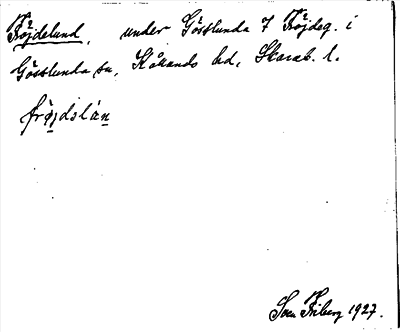 Fröjdelund, under Gösslunda 7 Fröjdeg. i
Gösslunda sn, Kållands hd, Skarab. l.
frö̱jdsláṉ
Sven Friberg 1927.